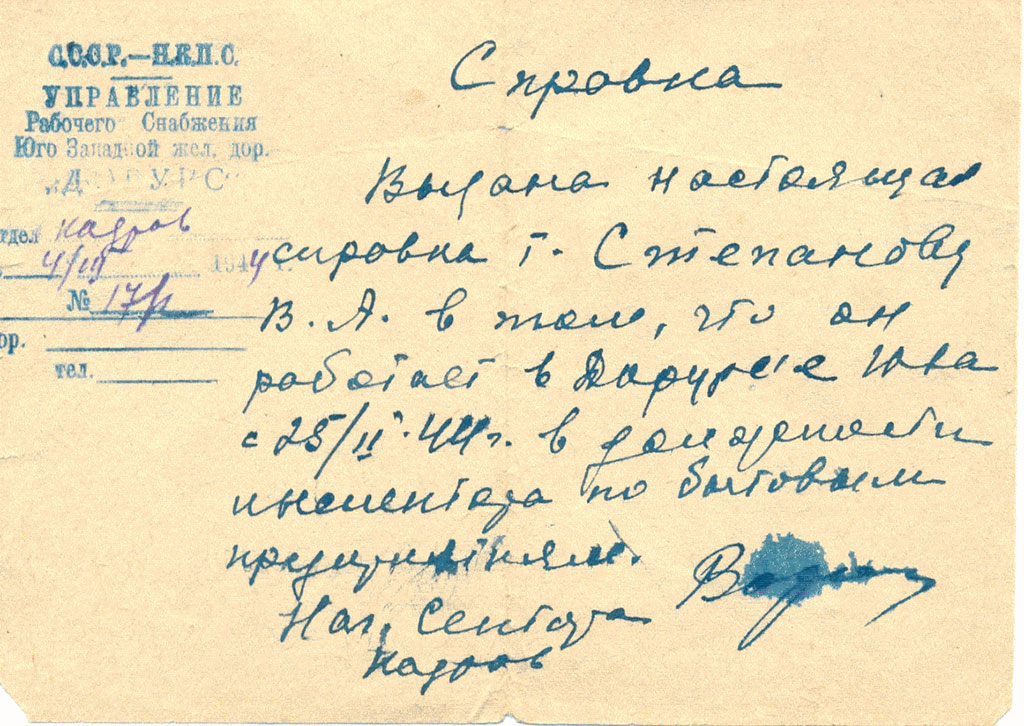 С.С.С.Р.—Н.К.П.С.
УПРАВЛЕНИЕ
Рабочего Снабжения
Юго Западной жел. дор.
„ДАРУРС“
тдел кадров
4/III 1944 г.
№ 17/к
ор.
тел.
Справка
Выдана настоящая
справка т. Степанову
В. А. в том, что он
работает в Дарурс'е
с 25/II-44 г. в должности
инспектора по бытовым
предприятиям.
Нач. Сектора
кадров